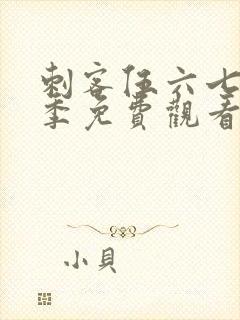 刺客伍六七
季免費觀看
小貝